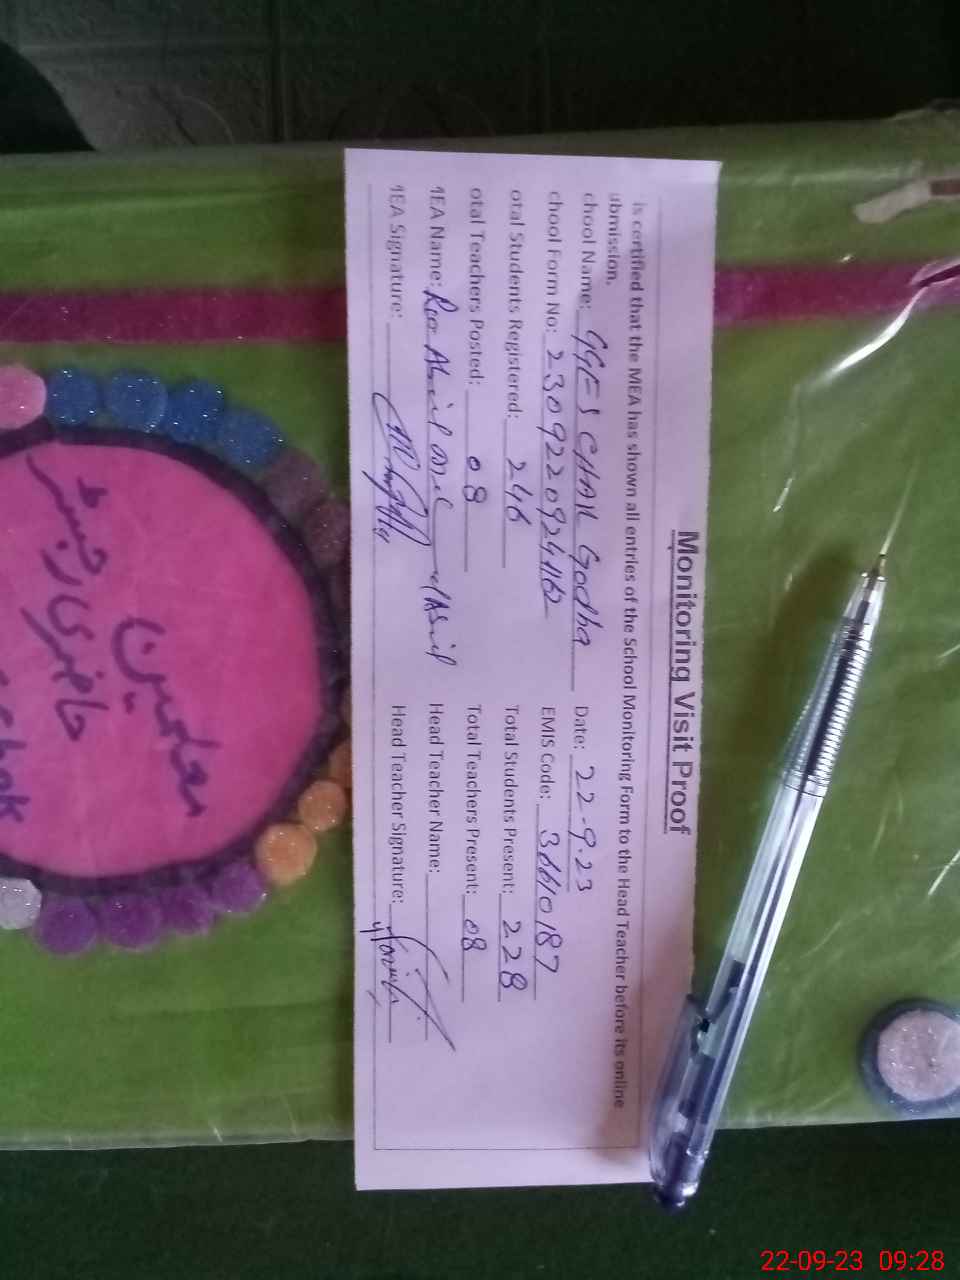 Monitoring Visit Proof
is certified that the MEA has shown all entries of the School Monitoring Form to the Head Teacher before its online
ubmission.
chool Name: GGES CHAK Godha Date: 22-9.23
chool Form No: EMIS Code: 36610187
otal Students Registered: 246 Total Students Present: 228
otal Teachers Posted: 08 Total Teachers Present: 08
MEA Name: Head Teacher Name:
MEA Signature: Head Teacher Signature:
معلمین
حاضری رجسٹر
22-09-23 09:28